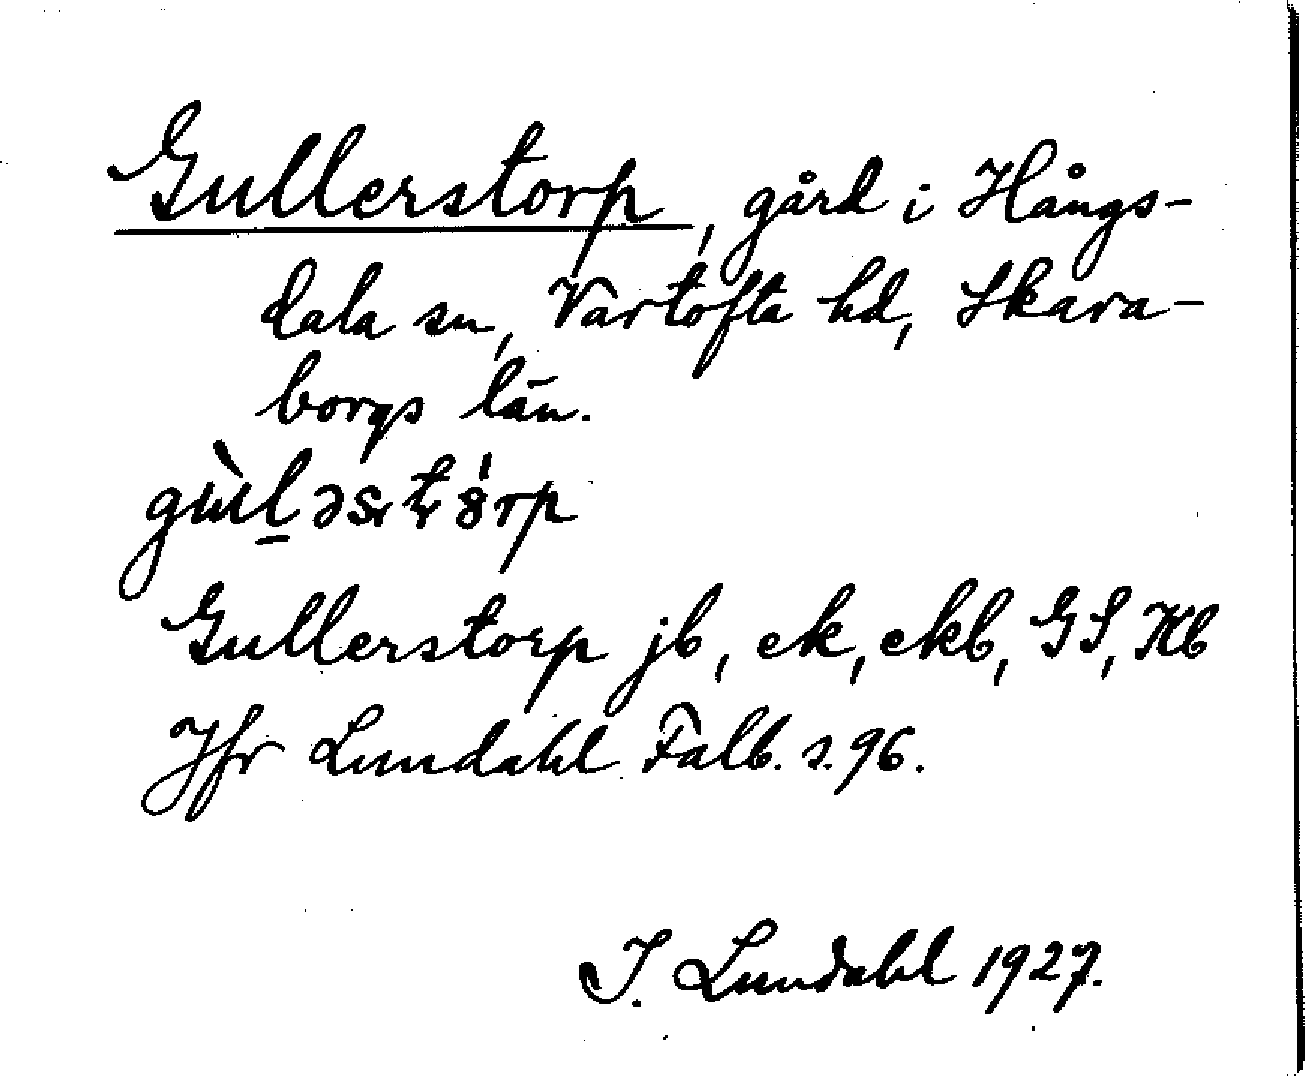 Gullerstorp, gård i Hångs-
dala sn, Vartofta hd, Skara-
borgs län.
Gullerstorp jb, ek, ekb, GS, Kb
Jfr Lundahl Falb. s. 96.
I. Lundahl 1927.